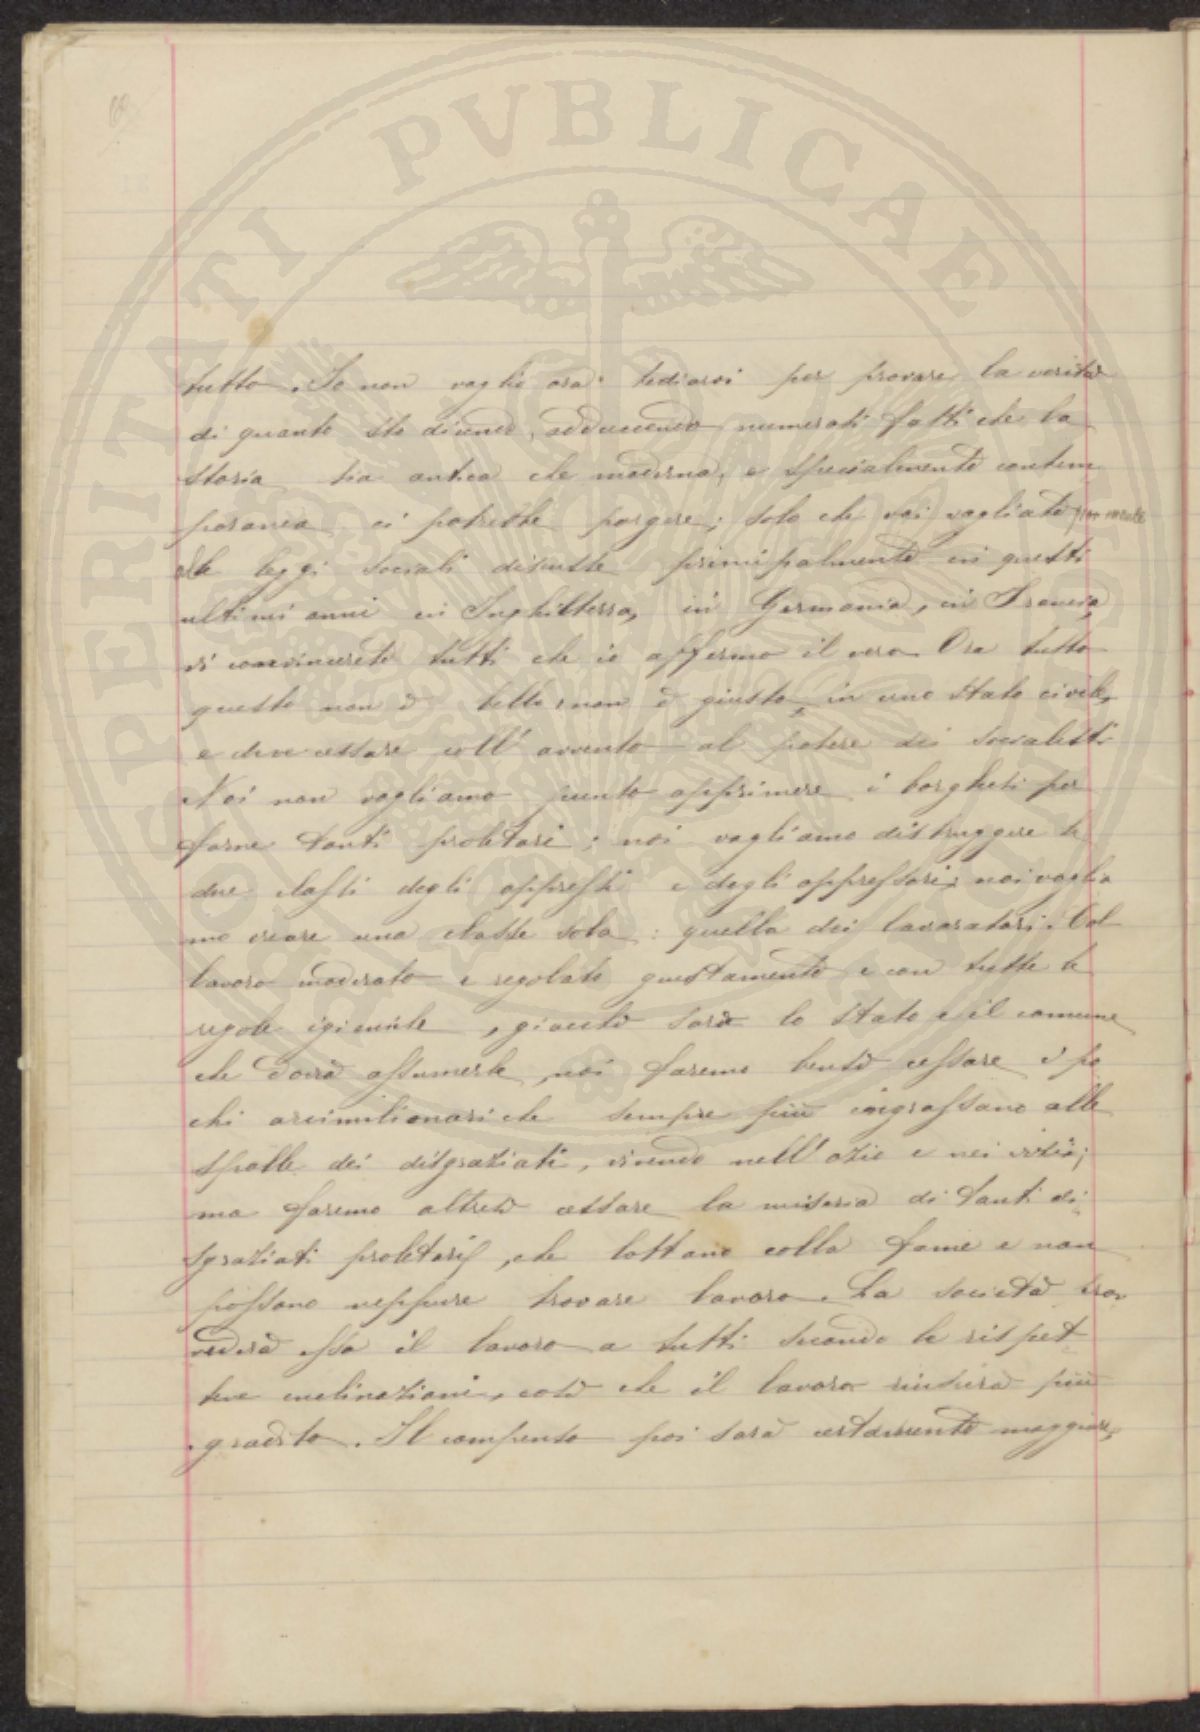 PROSPERITATI PVBLICAE
tutto. Io non voglio ora tediarvi per provare la verità
di quanto sto dicendo, adducendo numerati fatti che la
storia sia antica che moderna, e specialmente contem
poranea ci potrebbe porgere; solo che voi vogliate por mente
alle leggi sociali discusse principalmente in questi
ultimi anni in Inghilterra, in Germania, in Francia,
vi convincerete tutti che io affermo il vero. Ora tutto
questo non è bello, non è giusto, in uno stato civile,
e deve cessare coll' avvento al potere dei socialisti.
Noi non vogliamo punto opprimere i borghesi per
farne tanti proletari; noi vogliamo distruggere le
due classi degli oppressi e degli oppressori; noi voglia
mo creare una classe sola: quella dei lavoratori. Col
lavoro moderato e regolato giustamente e con tutte le
regole igieniche, giacchè sarà lo Stato e il comune
che dovrà assumerle, noi faremo bensì cessare i po
chi arcimilionari che sempre più ingrassano alle
spalle dei disgraziati, vivendo nell'ozio e nei vizii;
ma faremo altresì cessare la miseria di tanti di
sgraziati proletarii, che lottano colla fame e non
possono neppure trovare lavoro. La società prov
vederà essa il lavoro a tutti secondo le rispet
tive inclinazioni, così che il lavoro riuscirà più
gradito. Il compenso poi sarà certamente maggiore,